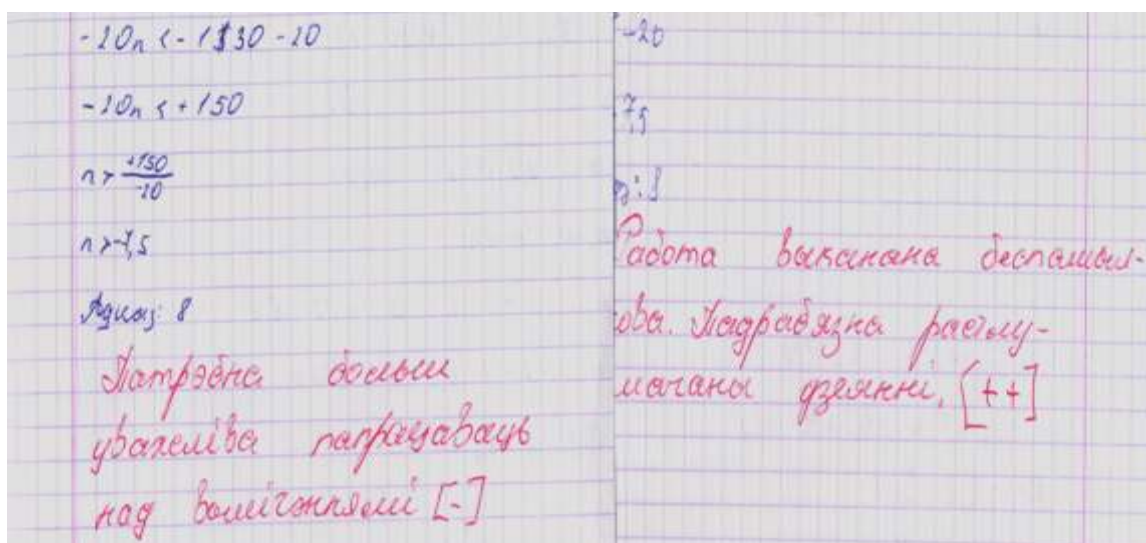 -20n < -1530 -20
-20n < +150
n > +150/-20
n > -7,5
Адказ: 8
Патрэбна больш
уважліва папрацаваць
над вылічэннямі [-]
-20
7,5
Работа выканана беспамыл-
кова. Падрабязна растлу-
мачаны дзеянні. [++]